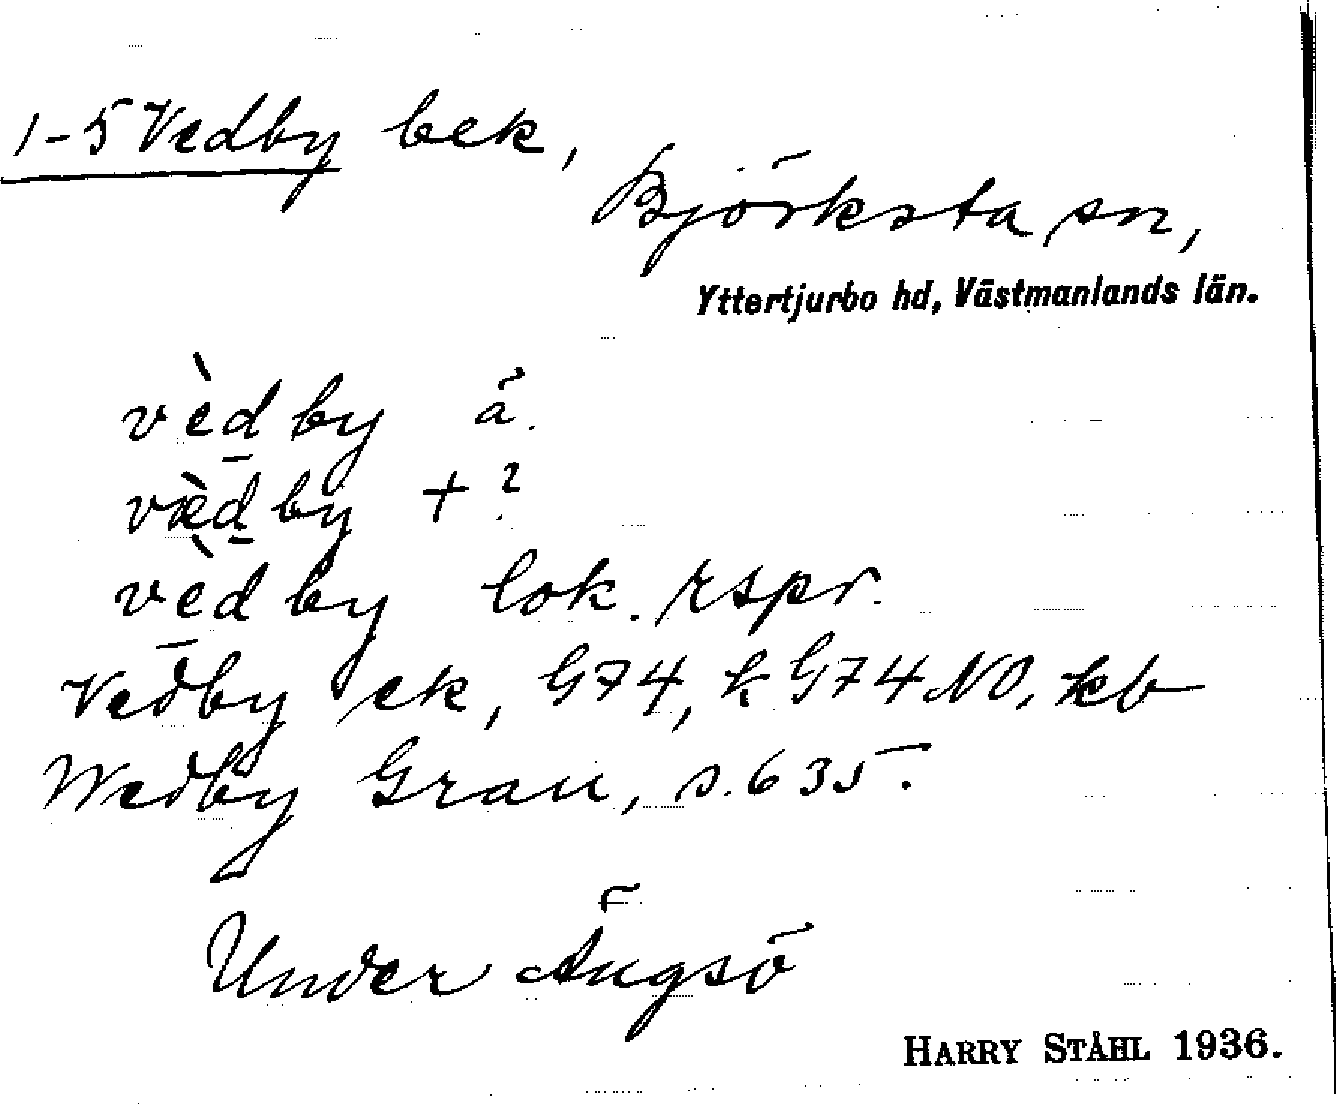 1-5 Vedby bek,
Björksta sn,
Yttertjurbo hd, Västmanlands län.
vèd̲by ä.
væ̀d̲by + ?
vèd̲by lok. rspr.
Vedby ek, G74, k G74 NO, kb
Wedby Grau, s. 635.
Under Ängsö
HARRY STÅHL 1936.